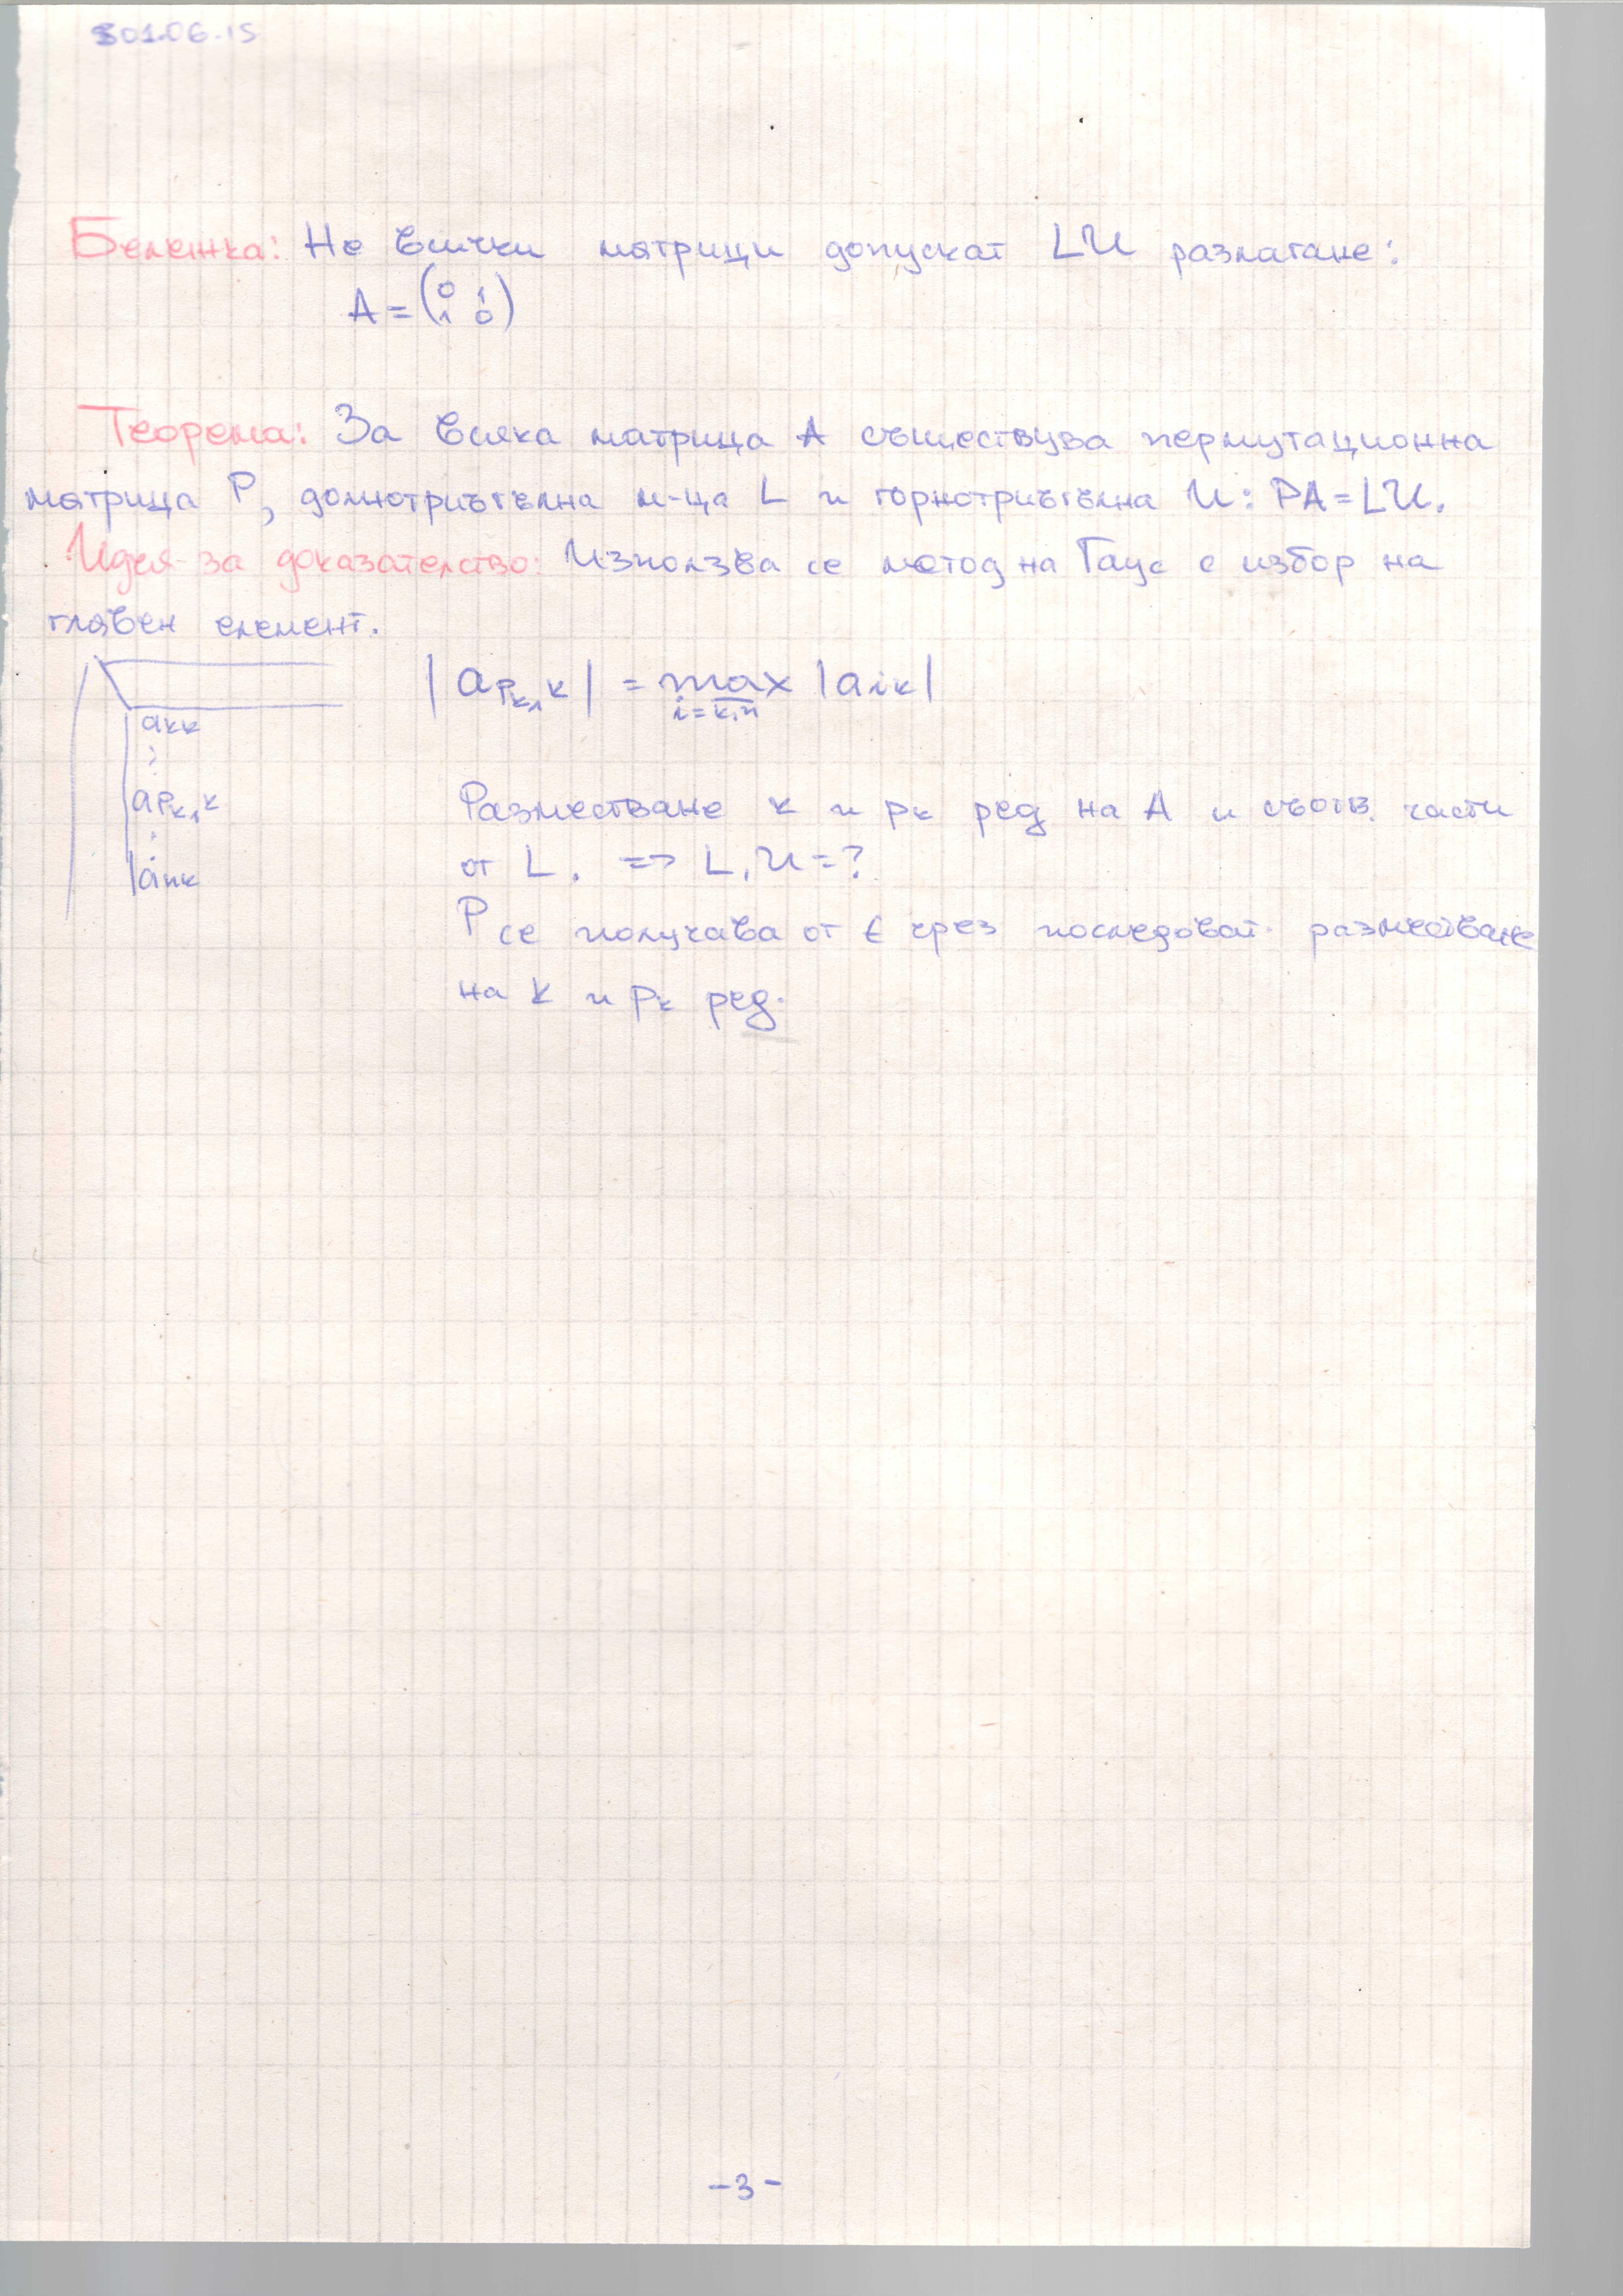 01.06.15
Бележка: Не всички матрици допускат LU разлагане:
A = (0 1
1 0)
Теорема: За всяка матрица A съществува пермутационна
матрица P, долнотриъгълна м-ца L и горнотриъгълна U: PA = LU.
Идея за доказателство: Използва се метод на Гаус с избор на
главен елемент.
|a_{p_k,k}| = max_{i=k,n} |a_{ik}|
a_{kk}
⋮
a_{p_k,k}
⋮
a_{nk}
Разместване k и p_k ред на A и съотв. части
от L. => L, U = ?
P се получава от E чрез последоват. разместване
на k и p_k ред.
-3-